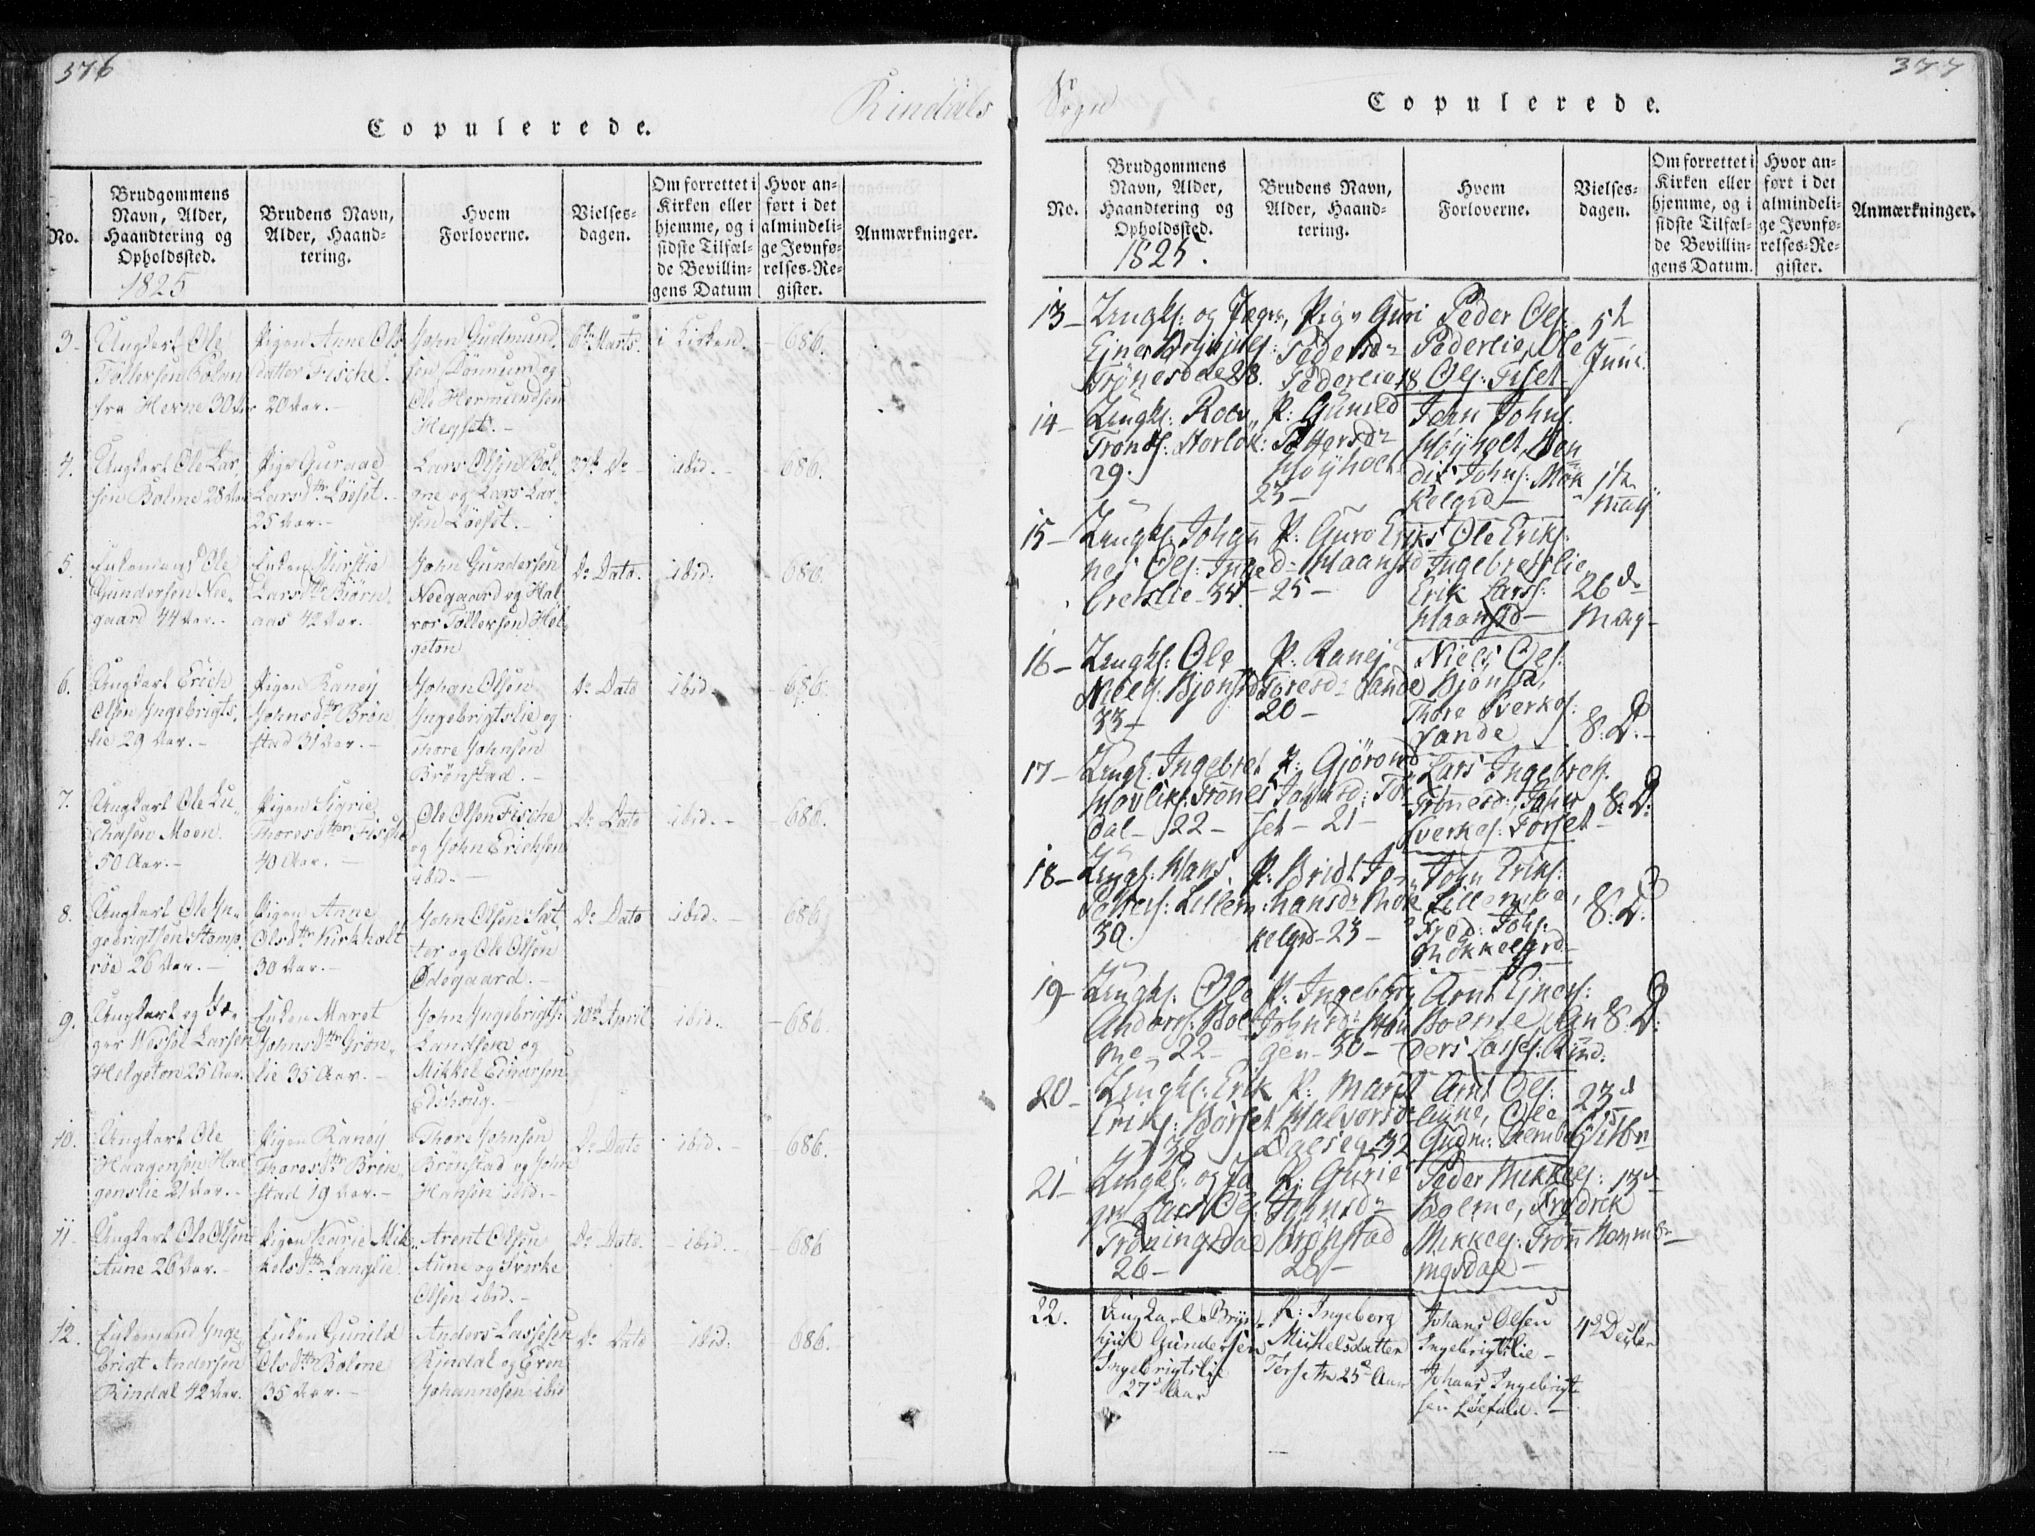 376
Rindals
Copulerede.
No.
Brudgommens
Navn, Alder,
Haandtering og
Opholdssted.
1825
Brudens Navn,
Alder, Haand-
tering.
Hvem
Forloverne.
Vielses-
dagen.
Om forrettet i
Kirken eller
hjemme, og i
sidste Tilfæl-
de Bevillin-
gens Datum
Hvor an-
ført i det
almindeli-
ge Jevnfø-
relses-Re-
gister.
Anmærkninger.
3.
Ungkarl Ole
Tollersen Bolan
fra Hevne 30 Aar
Pigen Anne Ols
datter Fische.
20 Aar.
John Gudmund
sen Dønnum og
Ole Hermundsen
Heyset.
6te Marts.
i Kirken.
686.
4.
Ungkarl Ole Lar
sen Bolme 28 Aar
Pige Guraae
Larsdtr Løeset.
25 Aar.
Lars Olsen Bol-
me og Lars Lar-
sen Løeset.
Do
ibid.
686.
5.
Enkemand Ole
Gundersen Nee-
gaard 44 Aar.
Enken Kirstie
Larsdtr Biørn
aas 42 Aar.
John Gundersen
Neegaard og Hal
vor Tollevsen Hel
geton
Do Dato.
ibid.
686.
6.
Ungkarl Erich
Olsen Ingebrigts
lie 29 Aar.
Pigen Raney
Johnsdtr Brøn
stad 31 Aar.
Johan Olsen
Ingebrigtslie og
Thore Johnsen
Brønstad.
Do Dato
ibid.
686.
7.
Ungkarl Ole Lu-
chasen Moen
50 Aar.
Pigen Sigrie
Thoresdtter Fische
40 Aar.
Ole Olsen Fische
og John Erichsen
ibid.
Do Dato
ibid.
686.
8.
Ungkarl Ole In-
gebrigtsen Stomp
røe 26 Aar.
Pigen Anne
Olsdtr Kirkholt
30 Aar.
John Olsen Sæt
ter og Ole Olsen
Ødegaard.
Do Dato
ibid.
686
9.
Ungkarl og Jæ-
ger Larsen
Helgeton 25 Aar.
Enken Maret
Johnsdtr Grøn-
lie 35 Aar.
John Ingebrigtsen
Landsem og
Mikkel Einarsen
April
ibid.
686.
10.
Ungkarl Ole
Haagensen Haa
genslie 21 Aar.
Pigen Raney
Thoresdtr Brøn
stad 19 Aar.
Thore Johnsen
Brønstad og John
Hansen ibid.
Do Dato
ibid
686.
11
Ungkarl Ole Olsen
Aune 26 Aar.
Pigen Karie Mik
kelsdtr Langlie
Arent Olsen
Aune og Sverke
Olsen ibid.
Do Dato.
ibid.
686
12.
Enkemand Inge
brigt Andersen
Rindal 42 Aar.
Enken Gunild
Olsdtr Bolme
35 Aar.
Anders Lassesen
Rindal og Even
Johannesen ibid
Do Dato
ibid.
686.
377
Sogn
Copulerede.
No.
Brudgommens
Navn, Alder,
Haandtering og
Opholdssted.
1825.
Brudens Navn,
Alder, Haand-
tering.
Hvem
Forloverne.
Vielses-
dagen.
Om forrettet i
Kirken eller
hjemme, og i
sidste Tilfæl-
de Bevillin-
gens Datum.
Hvor an-
ført i det
almindeli-
ge Jevnfø-
relses-Re-
gister.
Anmærkninger.
13
Ungks: og Jæger,
Ejner
Trønesdal 28.
Pige Guri
Pedersdr
Pederlie 18
Peder Ols:
Pederlie, Ole
Ols: Fiset
5te
Junii.
14
Ungks:
Tronds:
29.
P: Gunild
Pettersd
Høyholt
25
John Johns:
Høyholt,
dix Johns: Møk
kelgrd
1te
May
15
Ungks: Johan
nes Ols: Inge
bretslie 34.
P: Guro Eriks
d: Haangsd
25
Ole Eriks:
Ingebretslie
Erik Larss:
Haangsd
26de
May
16
Ungks: Ole
Niels: Bjønsd
33
P: Ranej
Toresdr Sande
20
Niels Ols:
Bjønsd,
Thore Sverkes:
Sande
8: D.
17
Ungk: Ingebret
Trønes
dal 22
P: Gjørond
For
set 21
Lars Ingebrets.
Trønesd: John
Sverkes: Forset
8: D:
18
Ungk: Hans
Petters: Lillem:
30.
P: Bridt Jo
hansdr
kelgrd 23
John Eriks:
Lillemoe,
Fred: Johs:
Møkkelgrd
8: D:
19
Ungks. Ole
Anders: Bol
me 22
P: Ingeborg
Johnsdr Hau
gen 30
Arnt Ejners:
Bolme, An
ders Lasses: Rind.
8: D:
20
Ungks: Erik
Eriks: Børset
38
P: Marit
Halvorsdr
32
Arnt Ols:
Aune, Ole
Gudm:
23de
21
Ungks: og Jæ
ger Lars Ols:
Trøningsdal
26
P: Gurie
Johnsdr
Brønstad
28
Peder Mikkels:
Bolme, Fredrik
Mikkels: Trøn
ingsdal
13de
Novmbr
22.
Ungkarl Bryn
hjul Gundersen
Ingebrigtslie
27 Aar
P: Ingeborg
Mikkelsdatter
Forsetn 25 Aar
Johans Olsen
Ingebrigtslie
Johans Ingebrigt
sen Løefald.
4de Decbr